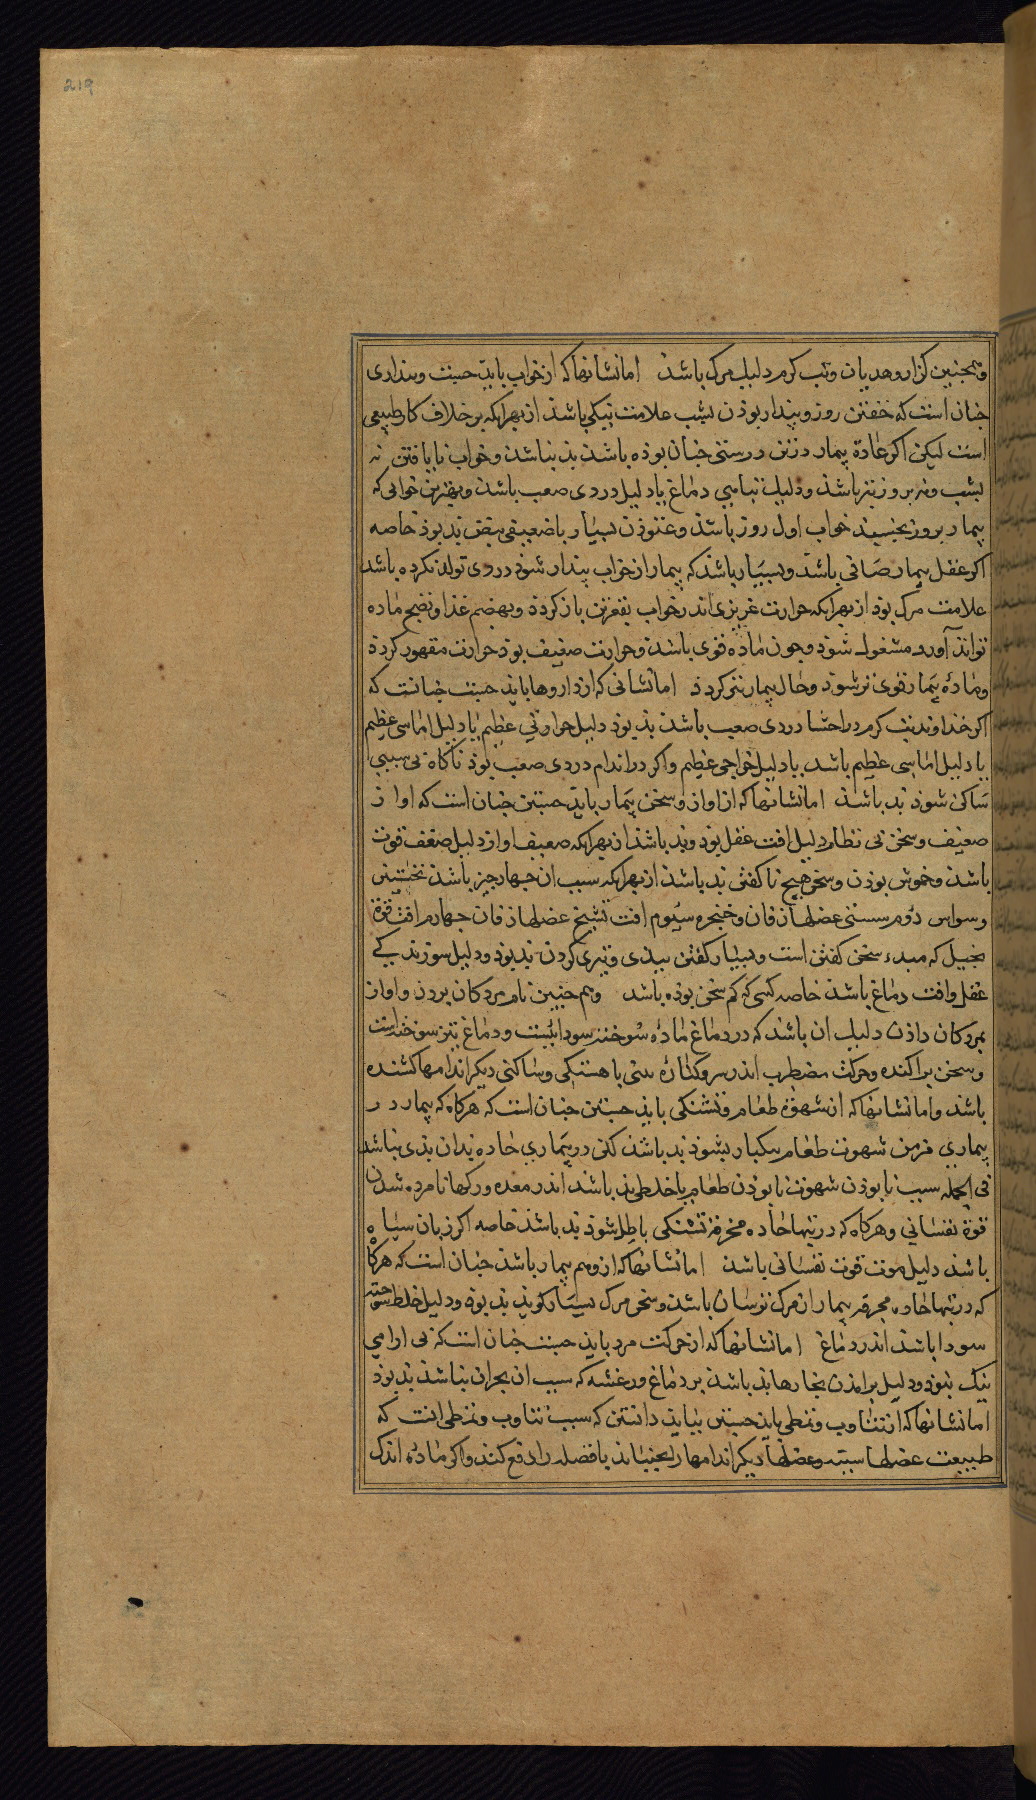 219
وهمچنین کزاز وهذیان وتب کرم دلیل مرک باشذ اما نشانها که از خواب بایذ جست وبیذاری
چنان است که خفتن روز وبیذار بوذن بشب علامت نیکی باشذ از بهر انکه بر خلاف کار طبیعی
است لیکن اکر عادة بیمار در تن درستی چنان بوذه باشذ بذ نباشذ وخواب نایافتن نه
بشب ونه بروز بتر باشذ ودلیل تباهی دماغ یا دلیل دردی صعب باشذ وبهترین خوابی که
بیمار بروز بخسبذ خواب اول روز باشذ وغنوذن بسیار با ضعیفی نبض بذ بوذ خاصه
اکر عقل بیمار صافی باشذ وبسیار باشذ که بیمار از خواب بیذار شوذ دردی تولد کرده باشذ
علامت مرک بوذ از بهر انکه حرارت غریزی اندر خواب بقعر تن باز کردذ وبهضم غذا ونضج ماده
تواند آورد مشغول شوذ وچون ماده قوی باشذ وحرارت ضعیف بوذ حرارت مقهور کردذ
وماده بیمار قوی تر شوذ وحال بیمار بتر کردذ اما نشانی که از داروها بایذ جست چنانست که
اکر خذاوند تب کرم در احشا دردی صعب باشذ بذ بوذ دلیل حرارتی عظیم یا دلیل اماسی عظیم
یا دلیل اماسی عظیم باشد یا دلیل خراجی عظیم واکر در اندام دردی صعب بوذ ناکاه بی سببی
ساکن شوذ بذ باشذ اما نشانها که از اواز وسخن بیمار بایذ جستن چنان است که اواز
ضعیف وسخن بی نظام دلیل افت عقل بوذ وبذ باشذ از بهر انکه ضعیف اواز دلیل ضعف قوت
باشذ وخموش بوذن وسخن هیچ ناکفتن بذ باشذ از بهر انکه سبب ان چهار چیز باشذ نخستین
وسواس دوم سستی عضلهای زفان وحنجره سیوم افت تشنج عضلهای زفان چهارم افت قوة
تخیل که مبدء سخن کفتن است وبسیار کفتن بیذی وتیزی کردن بذ بوذ ودلیل سوزندکی
عقل وافت دماغ باشذ خاصه کسی که کم سخن بوذه باشذ وهم چنین نام مردکان بردن واواز
بمردکان داذن دلیل ان باشذ که در دماغ ماده سوخته سوداییست ودماغ نیز سوخته است
وسخن پراکنده وحرکت مضطرب اندر سر وکناره بینی باهستکی وساکنی دیکر اندامها کشنده
باشذ واما نشانها که از شهوة طعام وتشنکی بایذ جستن چنان است که هرکاه که بیمار در
بیماری مزمن شهوت طعام یکبار بشوذ بذ باشذ لکن در بیماری حاده بذان بذی نباشذ
فی الجمله سبب نابوذن شهوت نابوذن طعام یا خلطی بذ باشذ اندر معده ورکها یا مرده شدن
قوة نفسانی وهرکاه که در تبهاء حاده محرقه تشنکی باطل شوذ بذ باشذ خاصه اکر زبان سیاه
باشذ دلیل موت قوت نفسانی باشذ اما نشانها که از وهم بیمار باشذ چنان است که هرکاه
که در تبهاء حاده محرقه بیمار از مرک ترسان باشذ وسخن مرک بسیار کویذ بذ بوذ ودلیل خلط سوخته
سودا باشذ اندر دماغ اما نشانها که از حرکت مرد بایذ جست چنان است که بی ارامی
نیک نبوذ ودلیل برامدن بخارها بذ باشذ بر دماغ ورعشه که سبب ان بحران نباشذ بذ بوذ
اما نشانها که از تثاوب وتمطی بایذ جستن ببایذ دانستن که سبب تثاوب وتمطی انست که
طبیعت عضلهاء سینه وعضلهاء دیکر اندامها را بجنباند یا فضله را دفع کند واکر ماده اندک